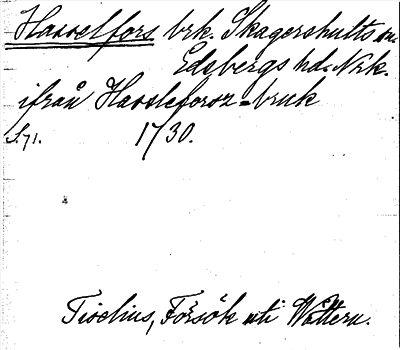 Hasselfors brk. Skagershults sn.
Edsbergs hd. Nrk.
ifrån Hassleforsz-bruk
S. 71. 1730.
Tiselius, Försök uti Wättern.